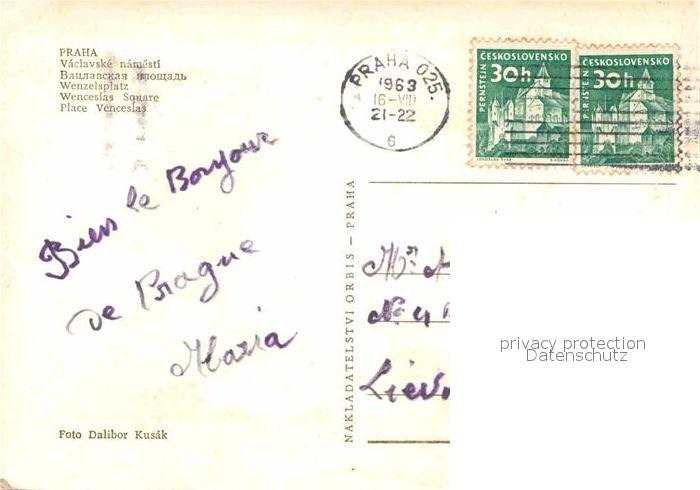 PRAHA
Václavské náměstí
Вацлавская площадь
Wenzelsplatz
Wenceslas Square
Place Venceslas
PRAHA 025.
1963
16-VIII
21-22
6
ČESKOSLOVENSKO
30h
PERNŠTEJN
ČESKOSLOVENSKO
30h
Bien le Bonjour
de Prague
Maria
NAKLADATELSTVÍ ORBIS — PRAHA
Mr
No 41
Liev
privacy protection
Datenschutz
Foto Dalibor Kusák